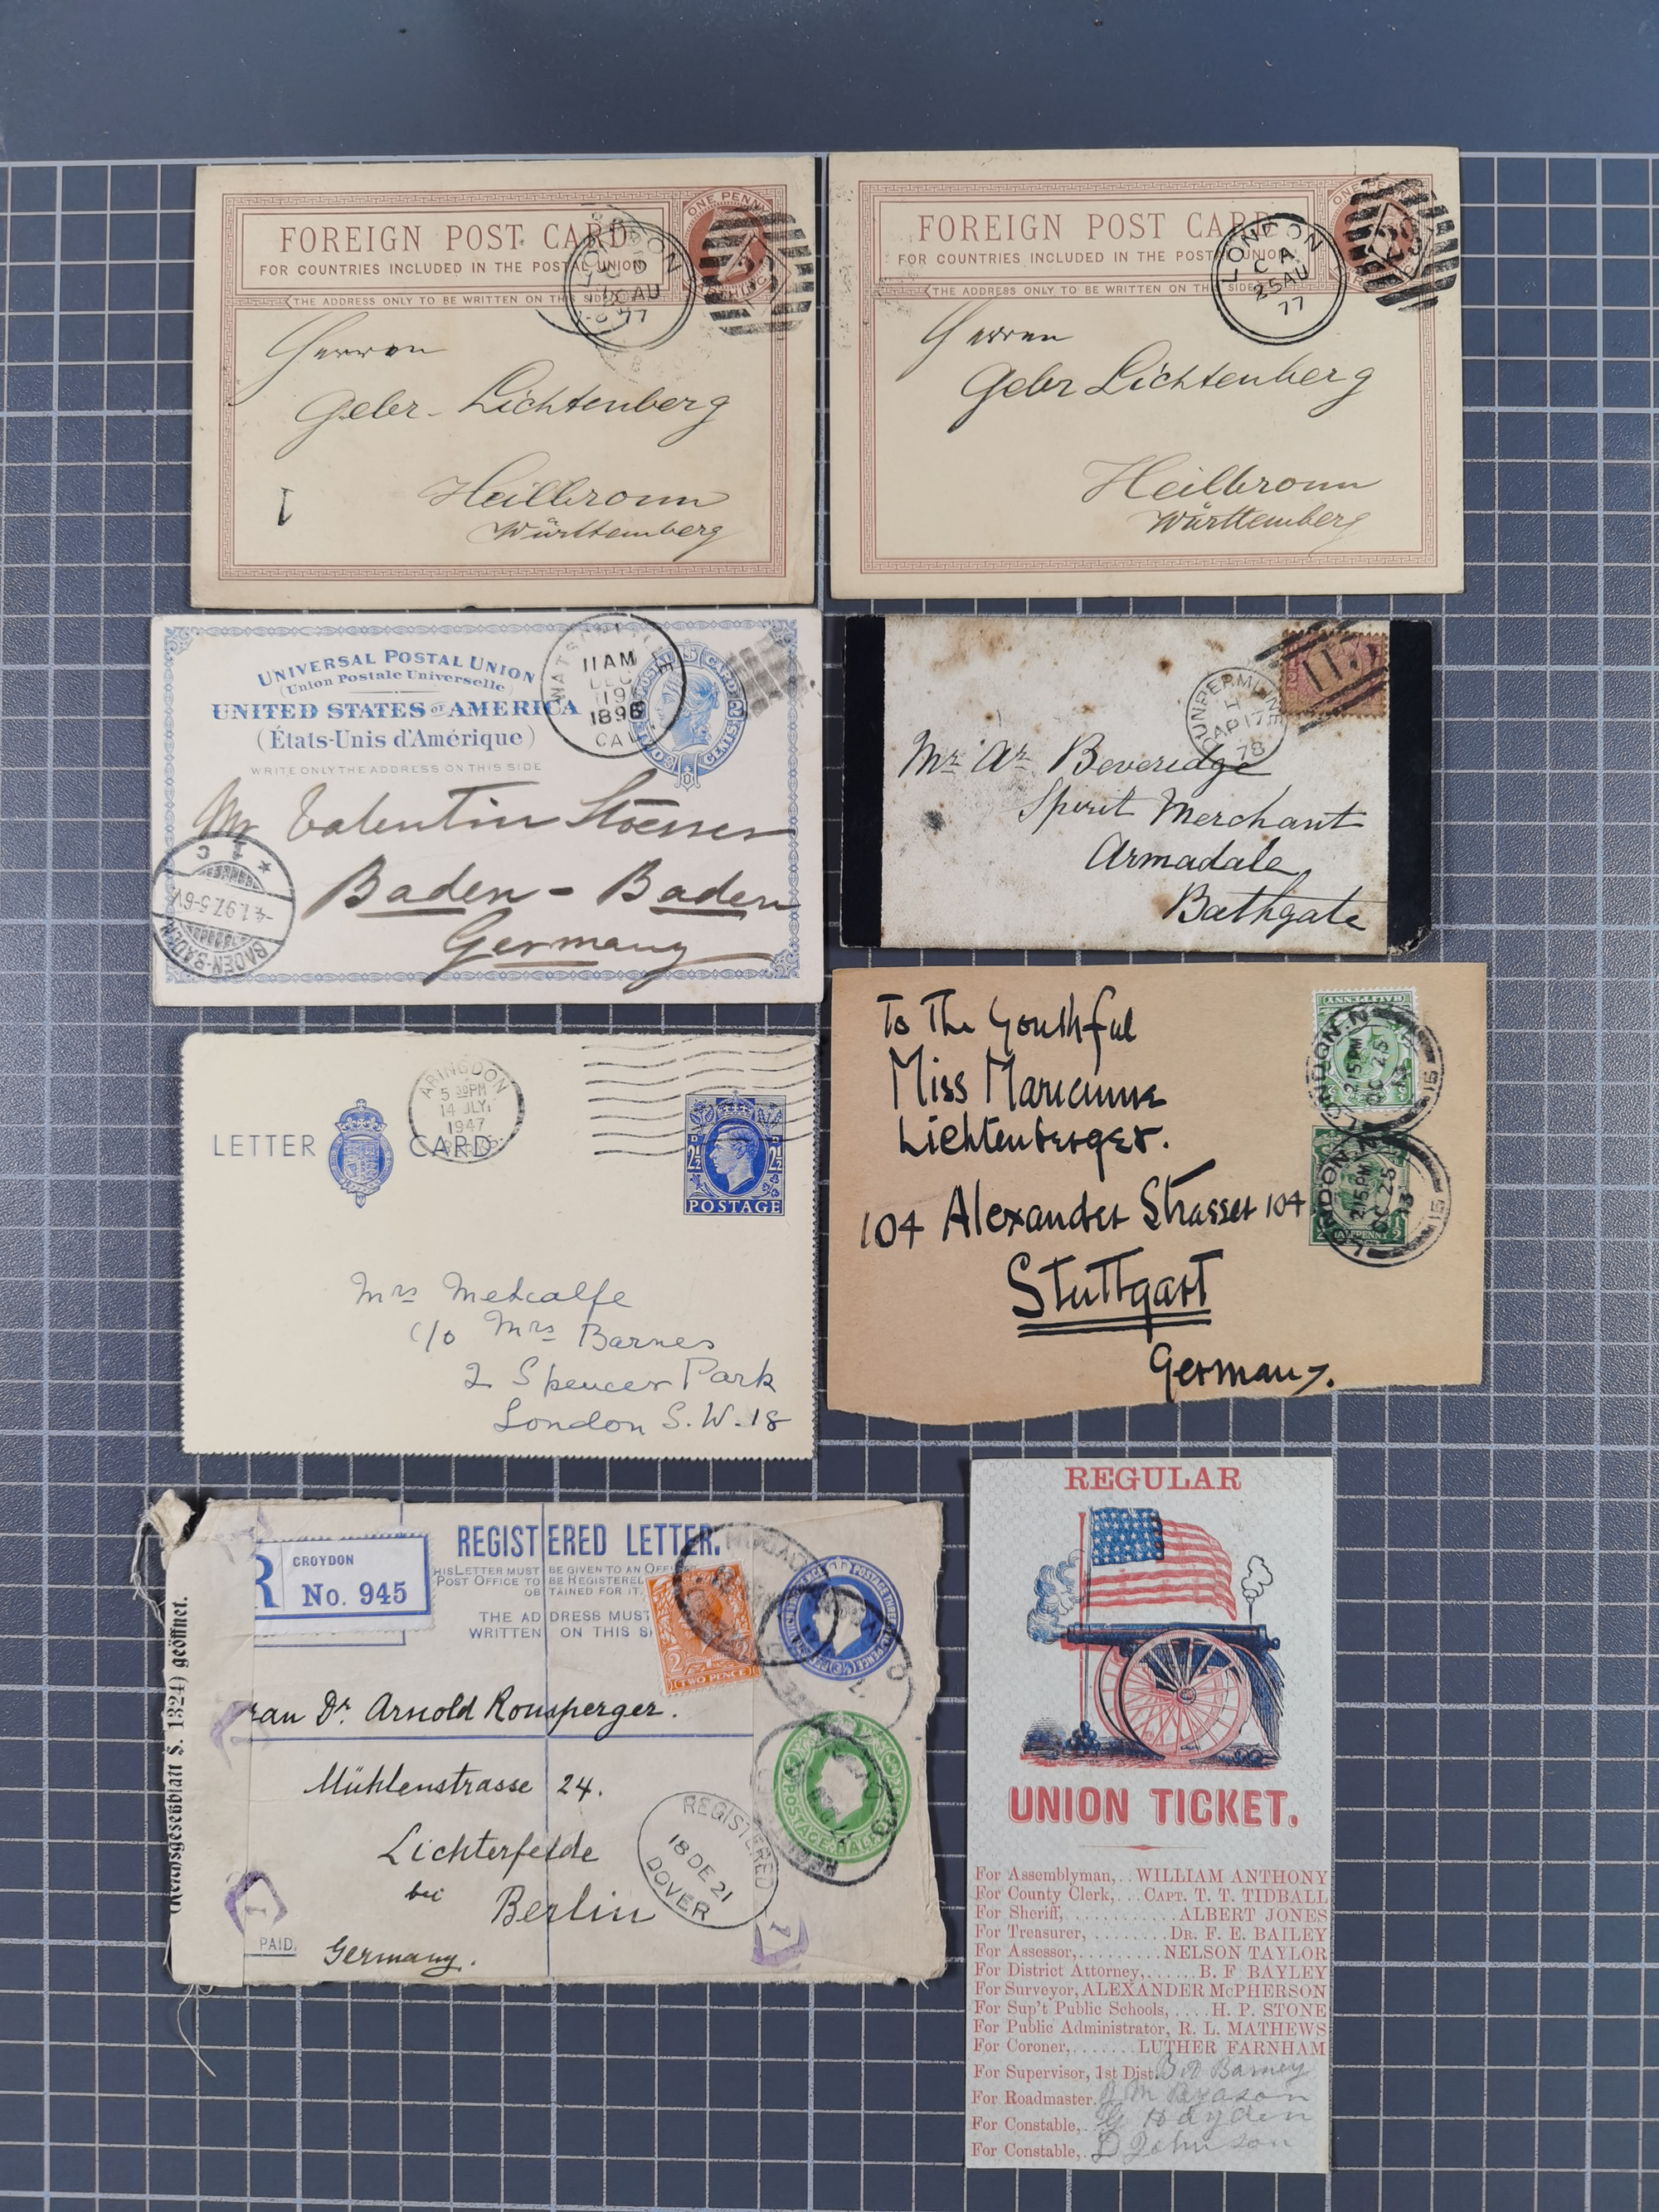 FOREIGN POST CARD
FOR COUNTRIES INCLUDED IN THE POSTAL UNION
THE ADDRESS ONLY TO BE WRITTEN ON THIS SIDE
ONE PENNY
LONDON
AU
77
Herren
Gebr. Lichtenberg
Heilbronn
Württemberg
FOREIGN POST CARD
FOR COUNTRIES INCLUDED IN THE POSTAL UNION
THE ADDRESS ONLY TO BE WRITTEN ON THIS SIDE
LONDON
C A
25 AU
77
Herren
Gebr Lichtenberg
Heilbronn
Württemberg
UNIVERSAL POSTAL UNION
(Union Postale Universelle)
UNITED STATES OF AMERICA
(États-Unis d'Amérique)
WRITE ONLY THE ADDRESS ON THIS SIDE
11 AM
DEC
19
1896
CAL
POSTAL CARD
TWO CENTS
Mr Valentin Stoesser
Baden-Baden
Germany
BADEN-BADEN
4.1.97.5-6V.
* 1 c
DUNFERMLINE
AP 17
78
Mr. Ar. Beveridge
Spirit Merchant
Armadale
Bathgate
LETTER CARD
ABINGDON
5 30 PM
14 JLY
1947
BERKS.
2½D
POSTAGE
Mrs Metcalfe
c/o Mrs Barnes
2 Spencer Park
London S.W.18
To The Youthful
Miss Marianne
Lichtenberger.
104 Alexander Strasser 104
Stuttgart
Germany.
HALFPENNY
LONDON.N
2.15 PM
OC 25
13
15
HALFPENNY
LONDON.N
2.15 PM
OC 25
13
15
Reichsgesetzblatt S. 1324) geöffnet.
R
CROYDON
No. 945
REGISTERED LETTER.
THIS LETTER MUST BE GIVEN TO AN OFF
POST OFFICE TO BE REGISTERED
OBTAINED FOR IT.
THE ADDRESS MUST
WRITTEN ON THIS S
TWO PENCE
rau Dr. Arnold Ronsperger.
Mühlenstrasse 24.
Lichterfelde
bei
Berlin
Germany.
PAID.
REGISTERED
18 DE 21
DOVER
REGULAR
UNION TICKET.
For Assemblyman,..WILLIAM ANTHONY
For County Clerk,...CAPT. T. T. TIDBALL
For Sheriff,...........ALBERT JONES
For Treasurer,........DR. F. E. BAILEY
For Assessor,.........NELSON TAYLOR
For District Attorney,......B. F BAYLEY
For Surveyor, ALEXANDER McPHERSON
For Sup't Public Schools,....H. P. STONE
For Public Administrator, R. L. MATHEWS
For Coroner,.......LUTHER FARNHAM
For Supervisor, 1st Dist. Barney
For Roadmaster. M Bryason
For Constable,. Hayden
For Constable,. D Johnson